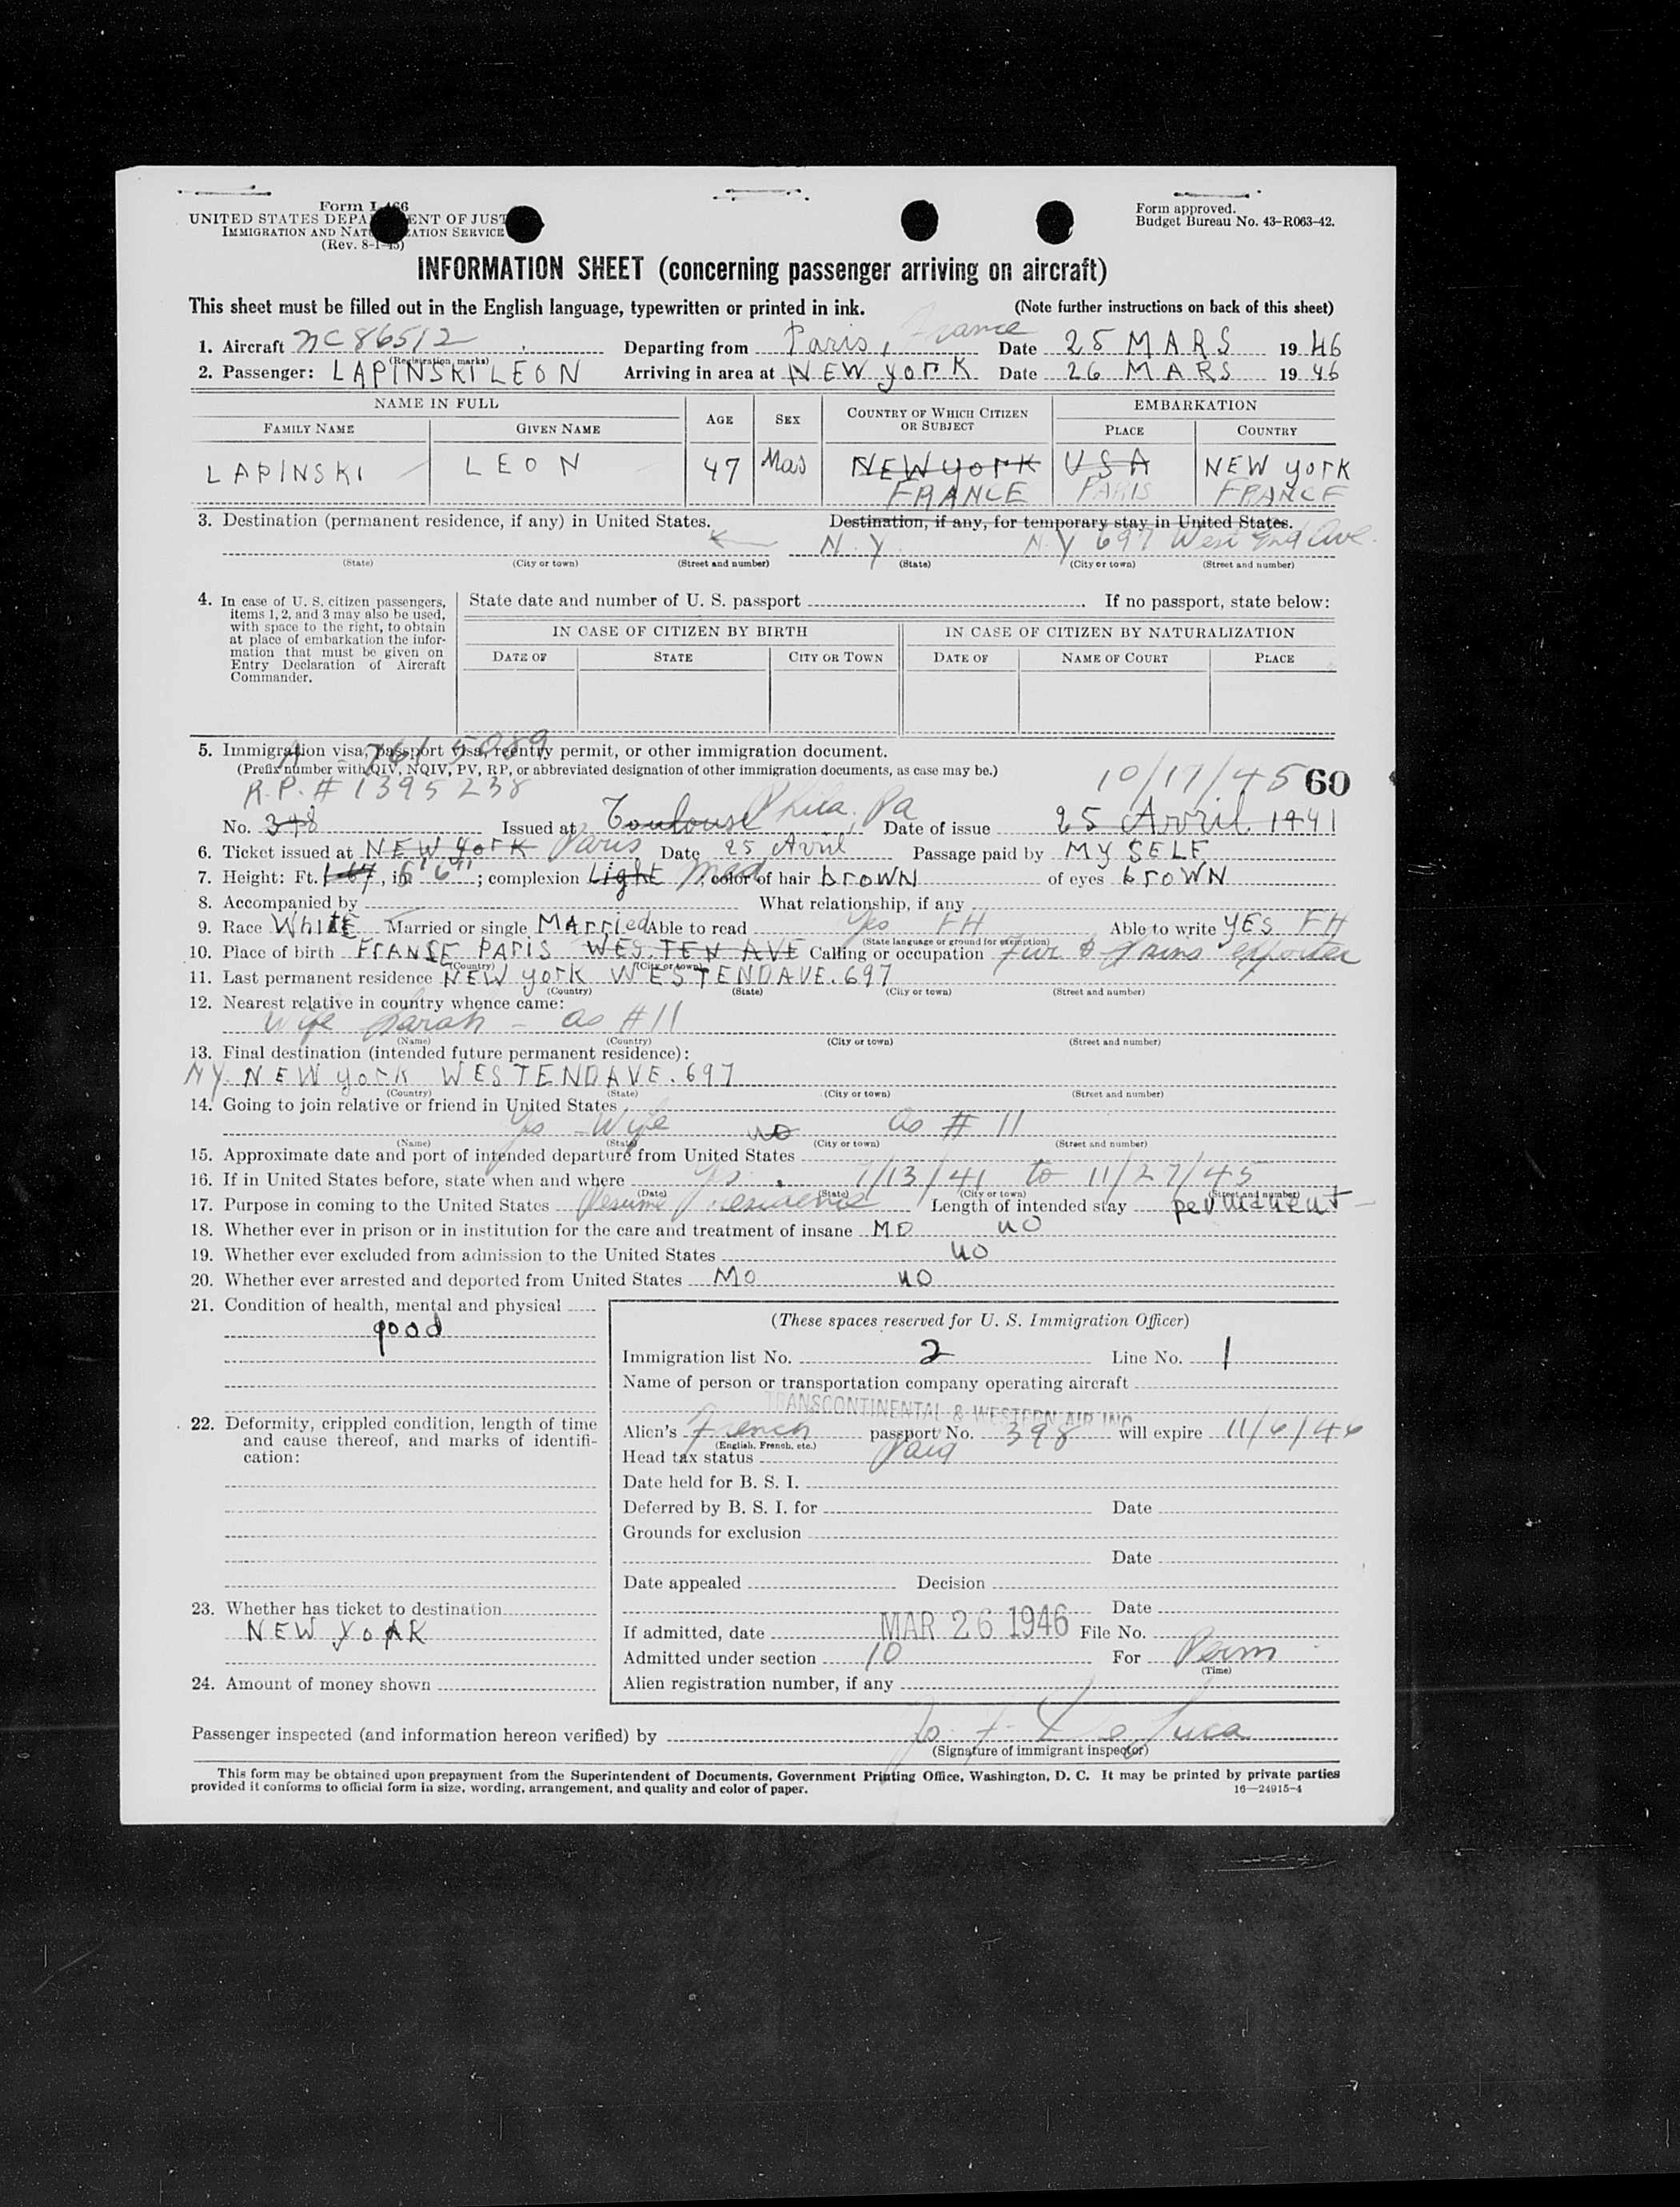 Form I-466
UNITED STATES DEPARTMENT OF JUSTICE
IMMIGRATION AND NATURALIZATION SERVICE
(Rev. 8-1-45)
Form approved.
Budget Bureau No. 43-R063-42.
INFORMATION SHEET (concerning passenger arriving on aircraft)
This sheet must be filled out in the English language, typewritten or printed in ink. (Note further instructions on back of this sheet)
1. Aircraft NC 86512 Departing from Paris, France Date 25 MARS 1946
(Registration marks)
2. Passenger: LAPINSKI LEON Arriving in area at NEW yOrK Date 26 MARS 1946
NAME IN FULL
FAMILY NAME GIVEN NAME AGE SEX COUNTRY OF WHICH CITIZEN OR SUBJECT EMBARKATION
PLACE COUNTRY
LAPINSKI LEON 47 Mas NEW yOrK USA NEW yOrK
FRANCE PARIS FRANCE
3. Destination (permanent residence, if any) in United States. Destination, if any, for temporary stay in United States.
N.Y. N.Y 697 West End Ave.
(State) (City or town) (Street and number) (State) (City or town) (Street and number)
4. In case of U. S. citizen passengers, items 1, 2, and 3 may also be used, with space to the right, to obtain at place of embarkation the information that must be given on Entry Declaration of Aircraft Commander.
State date and number of U. S. passport If no passport, state below:
IN CASE OF CITIZEN BY BIRTH IN CASE OF CITIZEN BY NATURALIZATION
DATE OF STATE CITY OR TOWN DATE OF NAME OF COURT PLACE
5. Immigration visa, passport visa, reentry permit, or other immigration document.
(Prefix number with QIV, NQIV, PV, RP, or abbreviated designation of other immigration documents, as case may be.)
10/17/45 60
R.P. # 1395238
No. 348 Issued at Toulouse Phila, Pa Date of issue 25 Avril 1941
6. Ticket issued at NEW yorK Paris Date 25 Avril Passage paid by MY SELF
7. Height: Ft. 1-67, in. 5'6"; complexion Light Med; color of hair brOWN of eyes brOWN
8. Accompanied by What relationship, if any
9. Race WhITE Married or single MArried Able to read Yes FH Able to write YES FH
(State language or ground for exemption)
10. Place of birth FRANSE PARIS WES.TEN AVE Calling or occupation Fur & exporter
(Country) (City or town)
11. Last permanent residence NEW yorK WESTENDAVE.697
(Country) (State) (City or town) (Street and number)
12. Nearest relative in country whence came:
Wife Sarah - as #11
(Name) (Country) (City or town) (Street and number)
13. Final destination (intended future permanent residence):
NY. NEW yorK WESTENDAVE.697
(Country) (State) (City or town) (Street and number)
14. Going to join relative or friend in United States
Ys - Wife as # 11
(Name) (State) (City or town) (Street and number)
15. Approximate date and port of intended departure from United States no
16. If in United States before, state when and where Ys. 7/13/41 to 11/27/45
(Date) (State) (City or town) (Street and number)
17. Purpose in coming to the United States Resume residence Length of intended stay permanent
18. Whether ever in prison or in institution for the care and treatment of insane MO no
19. Whether ever excluded from admission to the United States no
20. Whether ever arrested and deported from United States MO no
21. Condition of health, mental and physical
good
22. Deformity, crippled condition, length of time and cause thereof, and marks of identification:
23. Whether has ticket to destination
NEW yOrK
24. Amount of money shown
(These spaces reserved for U. S. Immigration Officer)
Immigration list No. 2 Line No. 1
Name of person or transportation company operating aircraft
TRANSCONTINENTAL & WESTERN AIR INC
Alien's French passport No. 398 will expire 11/6/46
(English, French, etc.)
Head tax status Paid
Date held for B. S. I.
Deferred by B. S. I. for Date
Grounds for exclusion
Date
Date appealed Decision
Date
If admitted, date MAR 26 1946 File No.
Admitted under section 10 For Perm
(Time)
Alien registration number, if any
Passenger inspected (and information hereon verified) by Jo. F. De Luca
(Signature of immigrant inspector)
This form may be obtained upon prepayment from the Superintendent of Documents, Government Printing Office, Washington, D. C. It may be printed by private parties
provided it conforms to official form in size, wording, arrangement, and quality and color of paper. 16—24915-4